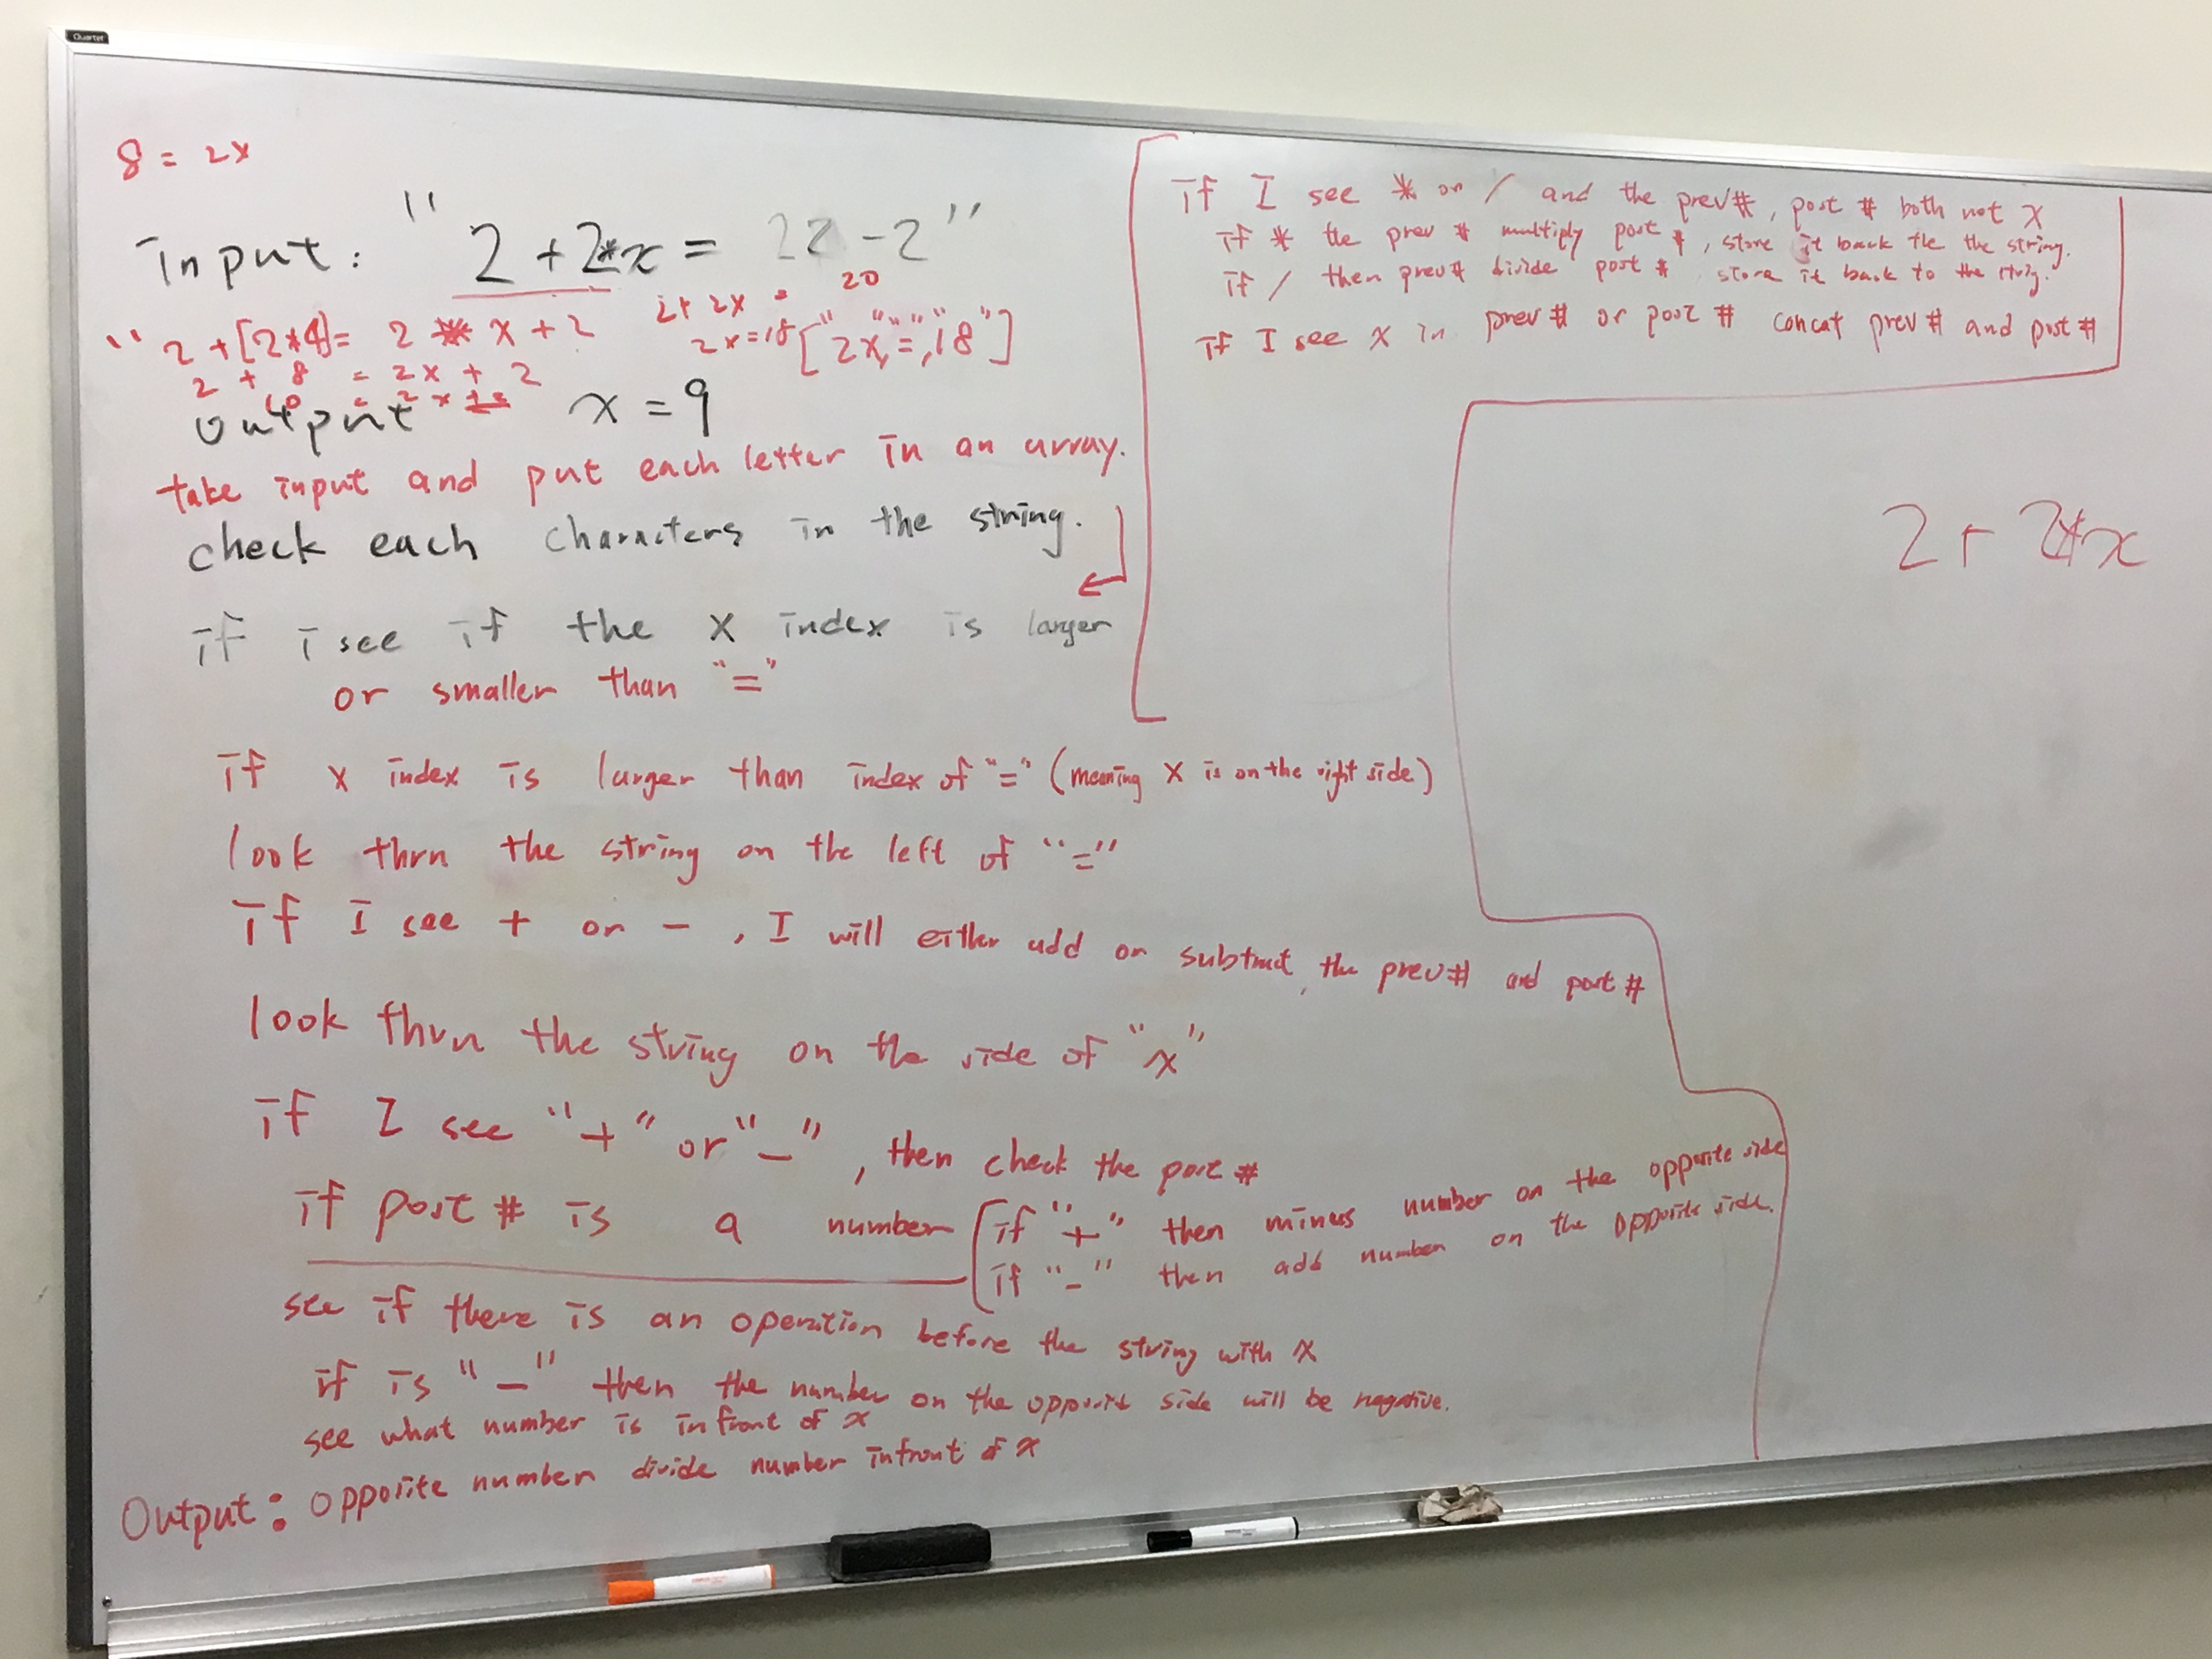 Quartet
8 = 2x
input: "2+2*x = 22-2"
20
"2+[2*4]= 2 * x+2
2+ 2x =
2x=18 ["2x","=","18"]
2 + 8 = 2x + 2
10 = 2x
output x = 9
take input and put each letter in an array.
check each characters in the string.
if i see if the x index is larger
or smaller than "="
if x index is larger than index of "=" (meaning x is on the right side)
look thru the string on the left of "="
if I see + or - , I will either add or subtract, the prev# and post #
look thru the string on the side of "x"
if I see "+" or "-" , then check the post #
if post # is a number
if "+" then minus number on the opposite side
if "-" then add number on the opposite side.
see if there is an operation before the string with x
if is "-" then the number on the opposite side will be negative.
see what number is infront of x
Output: opposite number divide number infront of x
if I see * or / and the prev#, post # both not x
if * the prev # multiply post #, store it back the the string.
if / then prev# divide post # store it back to the string.
if I see x in prev# or post # concat prev# and post #
2+ 2*x